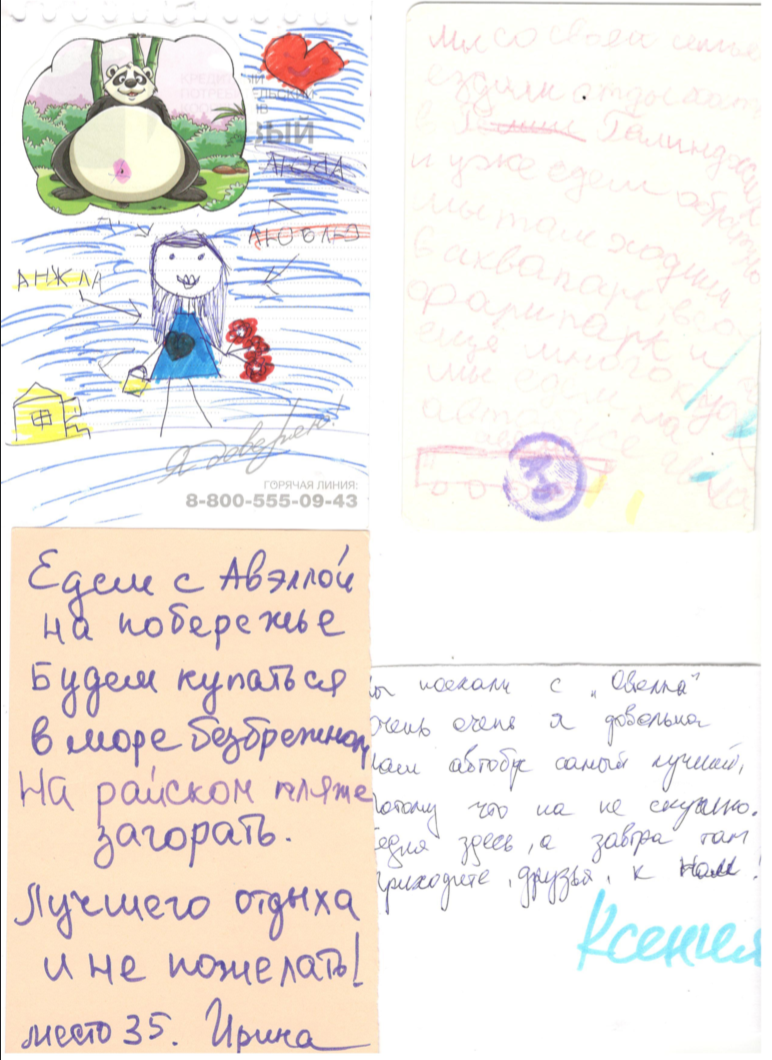 КРЕДИТНЫЙ
ПОТРЕБИТЕЛЬСКИЙ
ВЫЙ
ЛЮБЛЮ
АНЖЛА
Я доверяю!
ГОРЯЧАЯ ЛИНИЯ:
8-800-555-09-43
мы со своей семье
ездили отдыхать
в Галинджи
и уже едем обратно
мы там ходили
в аквапарк
фарипарк и
еще много куда
мы
Едем с Авэллой
на побережье
Будем купаться
в море безбрежном
На райском пляже
загорать.
Лучшего отдыха
и не пожелать!
место 35. Ирина
ы поехали с „Овелла"
очень очень я довольна
наш автобус самый лучший,
потому что на не скучно.
здесь, а завтра там
приходите, друзья, к нам!
Ксения